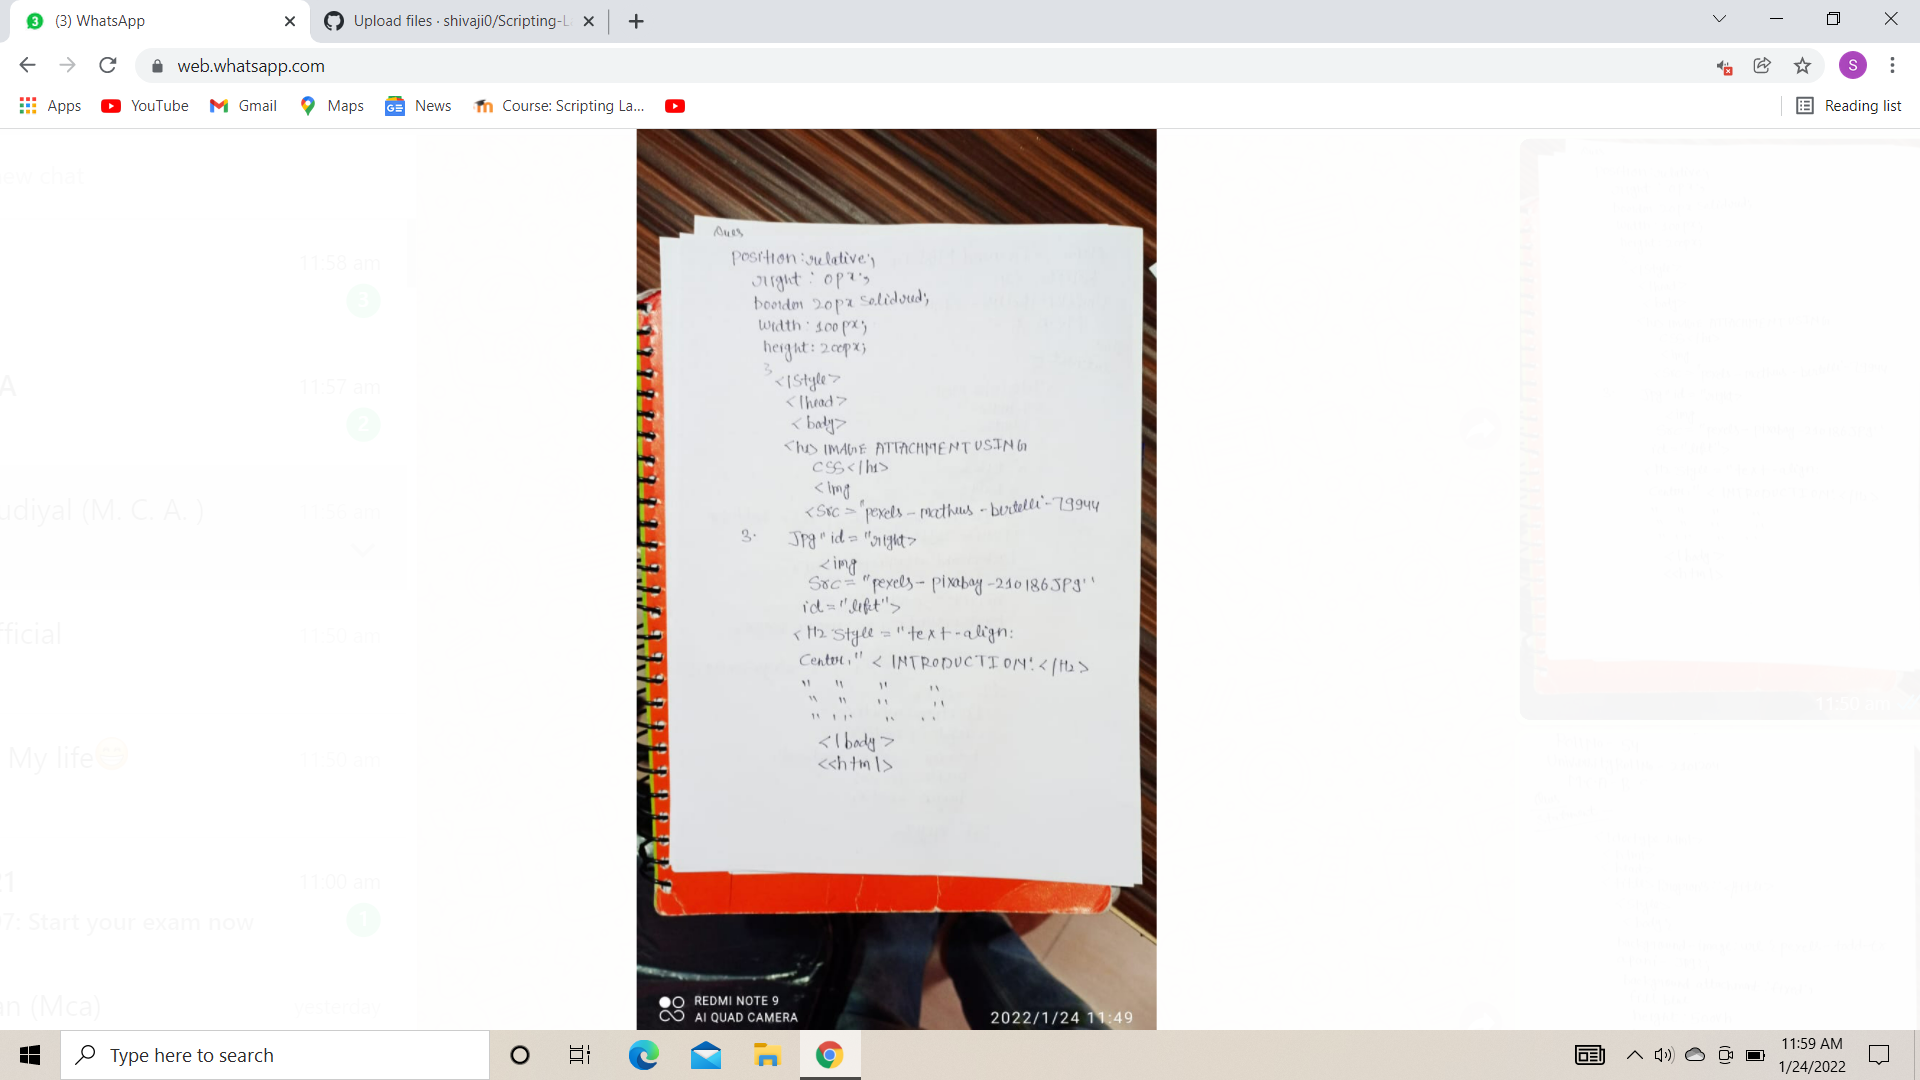 (3) WhatsApp
Upload files · shivaji0/Scripting-L
web.whatsapp.com
S
Apps
YouTube
Gmail
Maps
News
Course: Scripting La...
Reading list
new chat
11:58 am
3
A
11:57 am
2
udiyal (M. C. A. )
11:56 am
fficial
11:50 am
My life
11:50 am
21
11:00 am
97: Start your exam now
1
an (Mca)
yesterday
Ques
position:relative;
right : 0px;
boorder 20px solidred;
width: 100px;
height: 200px;
3
</Style>
</head>
<body>
<h1> IMAGE ATTACHMENT USING
CSS</h1>
<Img
<Src="pexels-matheus-bertelli-79944
3. Jpg" id="right>
<img
Src="pexels-pixabay-210186JPg"
id="left">
<H2 Style="text-align:
Center;" < INTRODUCTION:</H2>
" " " "
" " " "
" " " "
</body>
<<html>
REDMI NOTE 9
AI QUAD CAMERA
2022/1/24 11:49
11:50 am
Type here to search
11:59 AM
1/24/2022